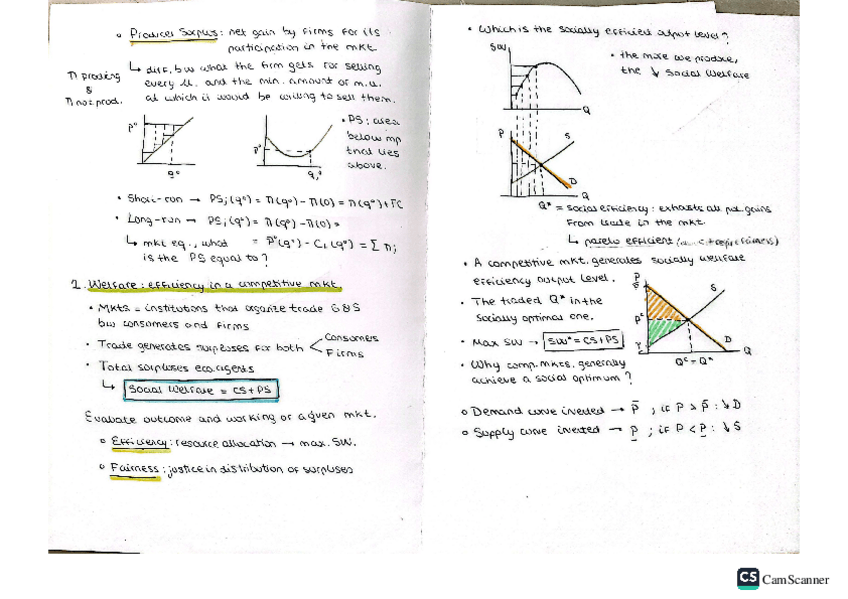 Producer Surplus: net gain by firms for its
participation in the mkt
↳ diff. bw what the firm gets for selling
every u. and the min. amount of m.u.
at which it would be willing to sell them.
π prod
&
π not prod.
P°
q°
P°
q°
• PS: area
below mp
that lies
above.
• Short-run → PSj(q°) = π(q°) - π(0) = π(q°) + FC
• Long-run → PSj(q°) = π(q°) - π(0) =
↳ mkt eq., what = P°(q°) - C(q°) = Σ πj
is the PS equal to?
2. Welfare: efficiency in a competitive mkt.
• Mkts = institutions that organize trade G&S
bw consumers and firms
• Trade generates surpluses for both < Consumers
Firms
• Total surpluses eco. agents
↳ Social Welfare = CS + PS
Evaluate outcome and working of a given mkt.
Efficiency: resource allocation → max. SW.
Fairness: justice in distribution of surpluses
• Which is the socially efficient output level?
SW
Q
• the more we produce,
the ↓ social welfare
P
S
D
Q
Q* = social efficiency: exhausts all gains
from trade in the mkt.
↳ pareto efficient
• A competitive mkt. generates socially wellfare
efficiency output level.
• The traded Q* in the
socially optimal one.
• Max SW → SW* = CS + PS
• Why comp. mkts. generally
achieve a social optimum?
P
S
D
Q
Qᶜ = Q*
Demand curve inverted → P̄ ; if P > P̄ : ↓D
Supply curve inverted → P̲ ; if P < P̲ : ↓S
CS CamScanner